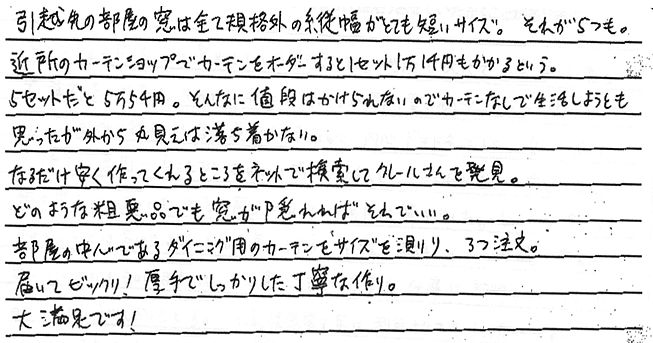 引越先の部屋の窓は全て規格外の縦幅がとても短いサイズ。それが5つも。
近所のカーテンショップでカーテンをオーダーすると1セット1万1千円もかかるという。
5セットだと5万5千円。そんなに値段はかけられないのでカーテンなしで生活しようとも
思ったが外から丸見えは落ち着かない。
なるだけ安く作ってくれるところをネットで検索してクレールさんを発見。
どのような粗悪品でも窓が隠れればそれでいい。
部屋の中心であるダイニング用のカーテンをサイズを測り、3つ注文。
届いてビックリ!厚手でしっかりした丁寧な作り。
大満足です!